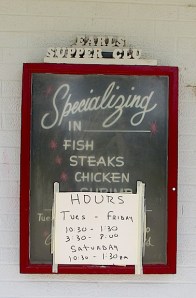 EARL'S
SUPPER CLU
Specializing
IN
FISH
STEAKS
CHICKEN
SHRIMP
HOURS
TUES - FRIDAY
10:30 - 1:30
3:30 - 8:00
SATURDAY
10:30 - 1:30PM